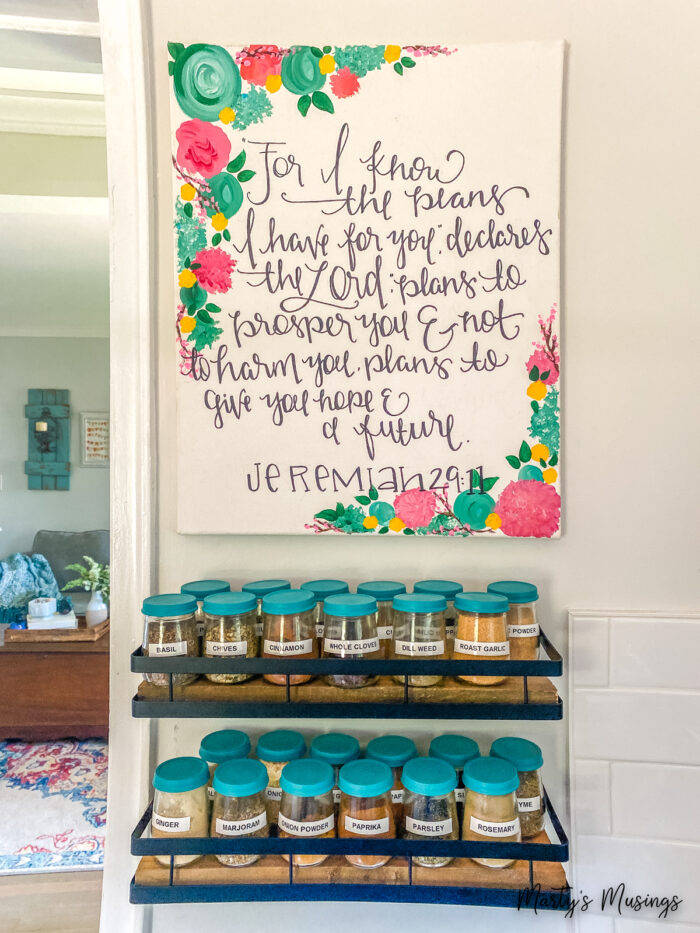 "For I know
the plans
I have for you," declares
the Lord, "plans to
prosper you & not
to harm you, plans to
give you hope &
a future.
Jeremiah 29:11
BASIL
CHIVES
CINNAMON
WHOLE CLOVES
DILL WEED
ROAST GARLIC
POWDER
GINGER
MARJORAM
ONION POWDER
PAPRIKA
PARSLEY
ROSEMARY
Marty's Musings